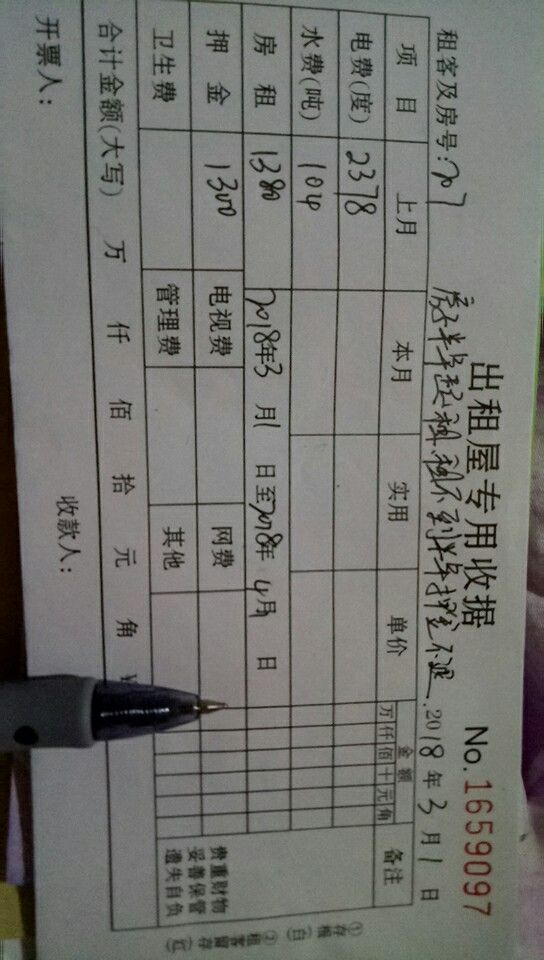 出租屋专用收据
No.1659097
租客及房号:707
房子半年起租,租不到半年押金不退.
2018年3月1日
项目 上月 本月 实用 单价 金额 备注
万 仟 佰 十 元 角
电费(度) 2378
水费(吨) 104
房租 1380 2018年3月1日至2018年4月1日
押金 1300 电视费 网费
卫生费 管理费 其他
贵重财物
妥善保管
遗失自负
合计金额(大写) 万 仟 佰 拾 元 角
开票人: 收款人:
①存根(白) ②租客留存(红)